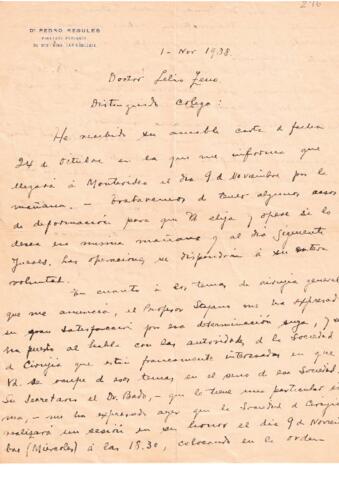 276
Dr. PEDRO REGULES
1 - Nov 1938.
Doctor Lelio Zeno.
Distinguido Colega:
He recibido su amable carta de fecha
24 de Octubre en la que me informa que
llegará á Montevideo el día 9 de Noviembre por la
mañana. - Trataremos de tener algunos casos
de deformación para que Vd elija y opere si lo
desea esa misma mañana y al día siguiente
Jueves. Las operaciones se dispondrán á su entera
voluntad.
En cuanto á los temas de cirujía general
que me anuncia, el Profesor Stajano me ha expresado
su gran satisfacción por esa determinación suya, y se
ha puesto al habla con las autoridades de la Sociedad
de Cirujía que están francamente interesadas en que
Vd. se ocupe de esos temas en el seno de esa Sociedad.
Su Secretario el Dr. Bado, - que lo tiene en particular esti
ma, - me ha expresado ayer que la Sociedad de Cirujía
realizará una sesión en su honor el día 9 de Noviem
bre (Miércoles) á las 18.30, colocando en la orden